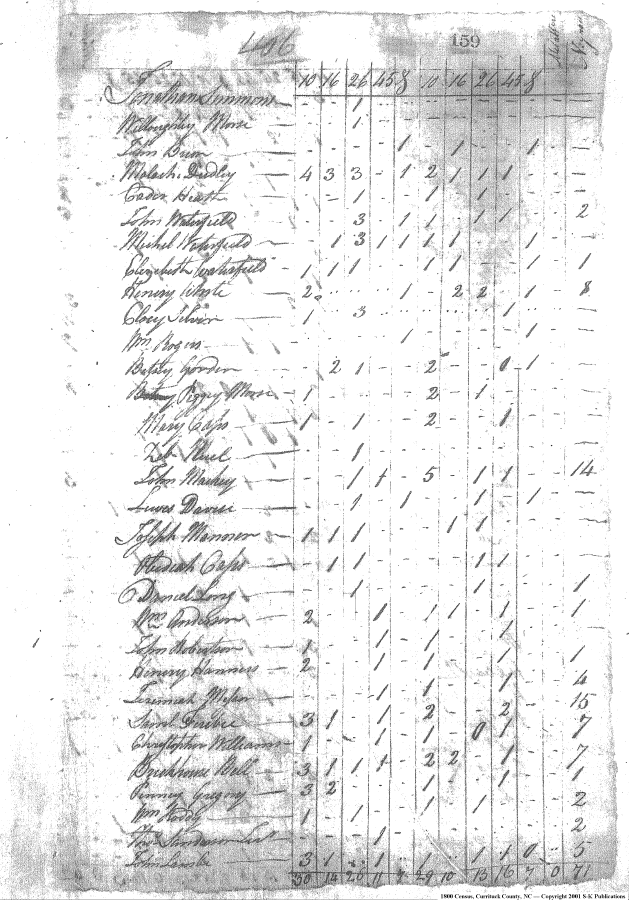 496 159
10 16 26 45 & 10 16 26 45 & Negroes
Jonathan Simmons - - 1 - - - - - - - - -
Willoughby Morse - - 1 - - - - - - - - -
John - - - - 1 - 1 - - 1 - -
Malachi Dudley 4 3 3 - 1 2 1 1 1 - - -
Caden Heath - - 1 - - 1 - 1 - - - -
John Waterfield - - 3 - 1 1 - 1 1 - - 2
Michel Waterfield - 1 3 1 1 1 1 - - 1 - -
Elizabeth Waterfield 1 1 1 - - 1 1 - - 1 - 1
Henery White 2 - - - 1 - 2 2 - 1 - 8
1 - 3 - - - - - 1 - - -
Wm. Rogers - - - - 1 - - - - 1 - -
Betsey Gordon - 2 1 - - 2 - - 0 1 - -
Peggy Morse 1 - - - - 2 - 1 - - - -
Mary Caps 1 - 1 - - 2 - - 1 - - -
Zeb - - 1 - - - - - - - - -
John Mackey - - 1 1 - 5 - 1 1 - - 14
Lewes Davis - - 1 - 1 - - 1 - 1 - -
Joseph Manner 1 1 1 - - - 1 1 - - - -
Caps - 1 1 - - - - 1 1 - - -
Daniel Long - - 1 - - - - 1 - - - 1
Wm. Anderson 2 - - 1 - 1 1 - 1 - - 1
John Robertson 1 - - 1 - 1 - - 1 - - -
Henery Hanners 2 - - 1 - 1 - - 1 - - 1
Jeremiah - - - 1 - 1 - - 1 - - 4
Saml. 3 1 - 1 - 2 - - 2 - - 15
Christopher Williams 1 - - 1 - 1 - 0 1 - - 7
Brickhouse Bell 3 1 1 1 - 2 2 - 1 - - 7
Pinney Gregory 3 2 - - - 1 - - 1 - - 1
Wm. 1 - 1 - - 1 - 1 - - - 2
Thos. Sanderson - - - 1 - - - - - - - 2
John 3 1 - 1 - 1 - 1 1 0 - 5
30 14 11 7 29 10 13 16 7 0 71
1800 Census, Currituck County, NC — Copyright 2001 S-K Publications